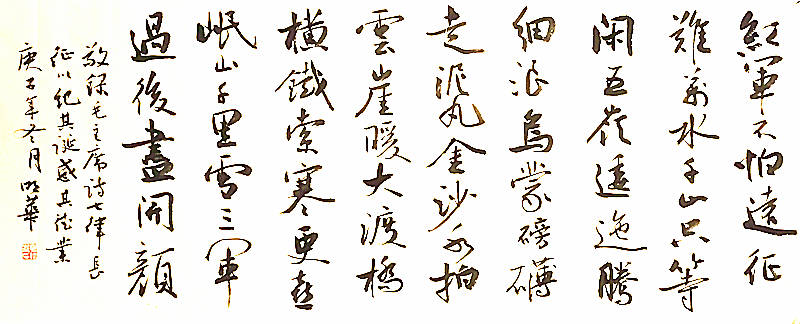 紅軍不怕遠征
難萬水千山只等
閑五嶺逶迤騰
細浪烏蒙磅礴
走泥丸金沙水拍
雲崖暖大渡橋
橫鐵索寒更喜
岷山千里雪三軍
過後盡開顏
敬錄毛主席詩七律長
征以紀其誕感其德業
庚子年冬月明華